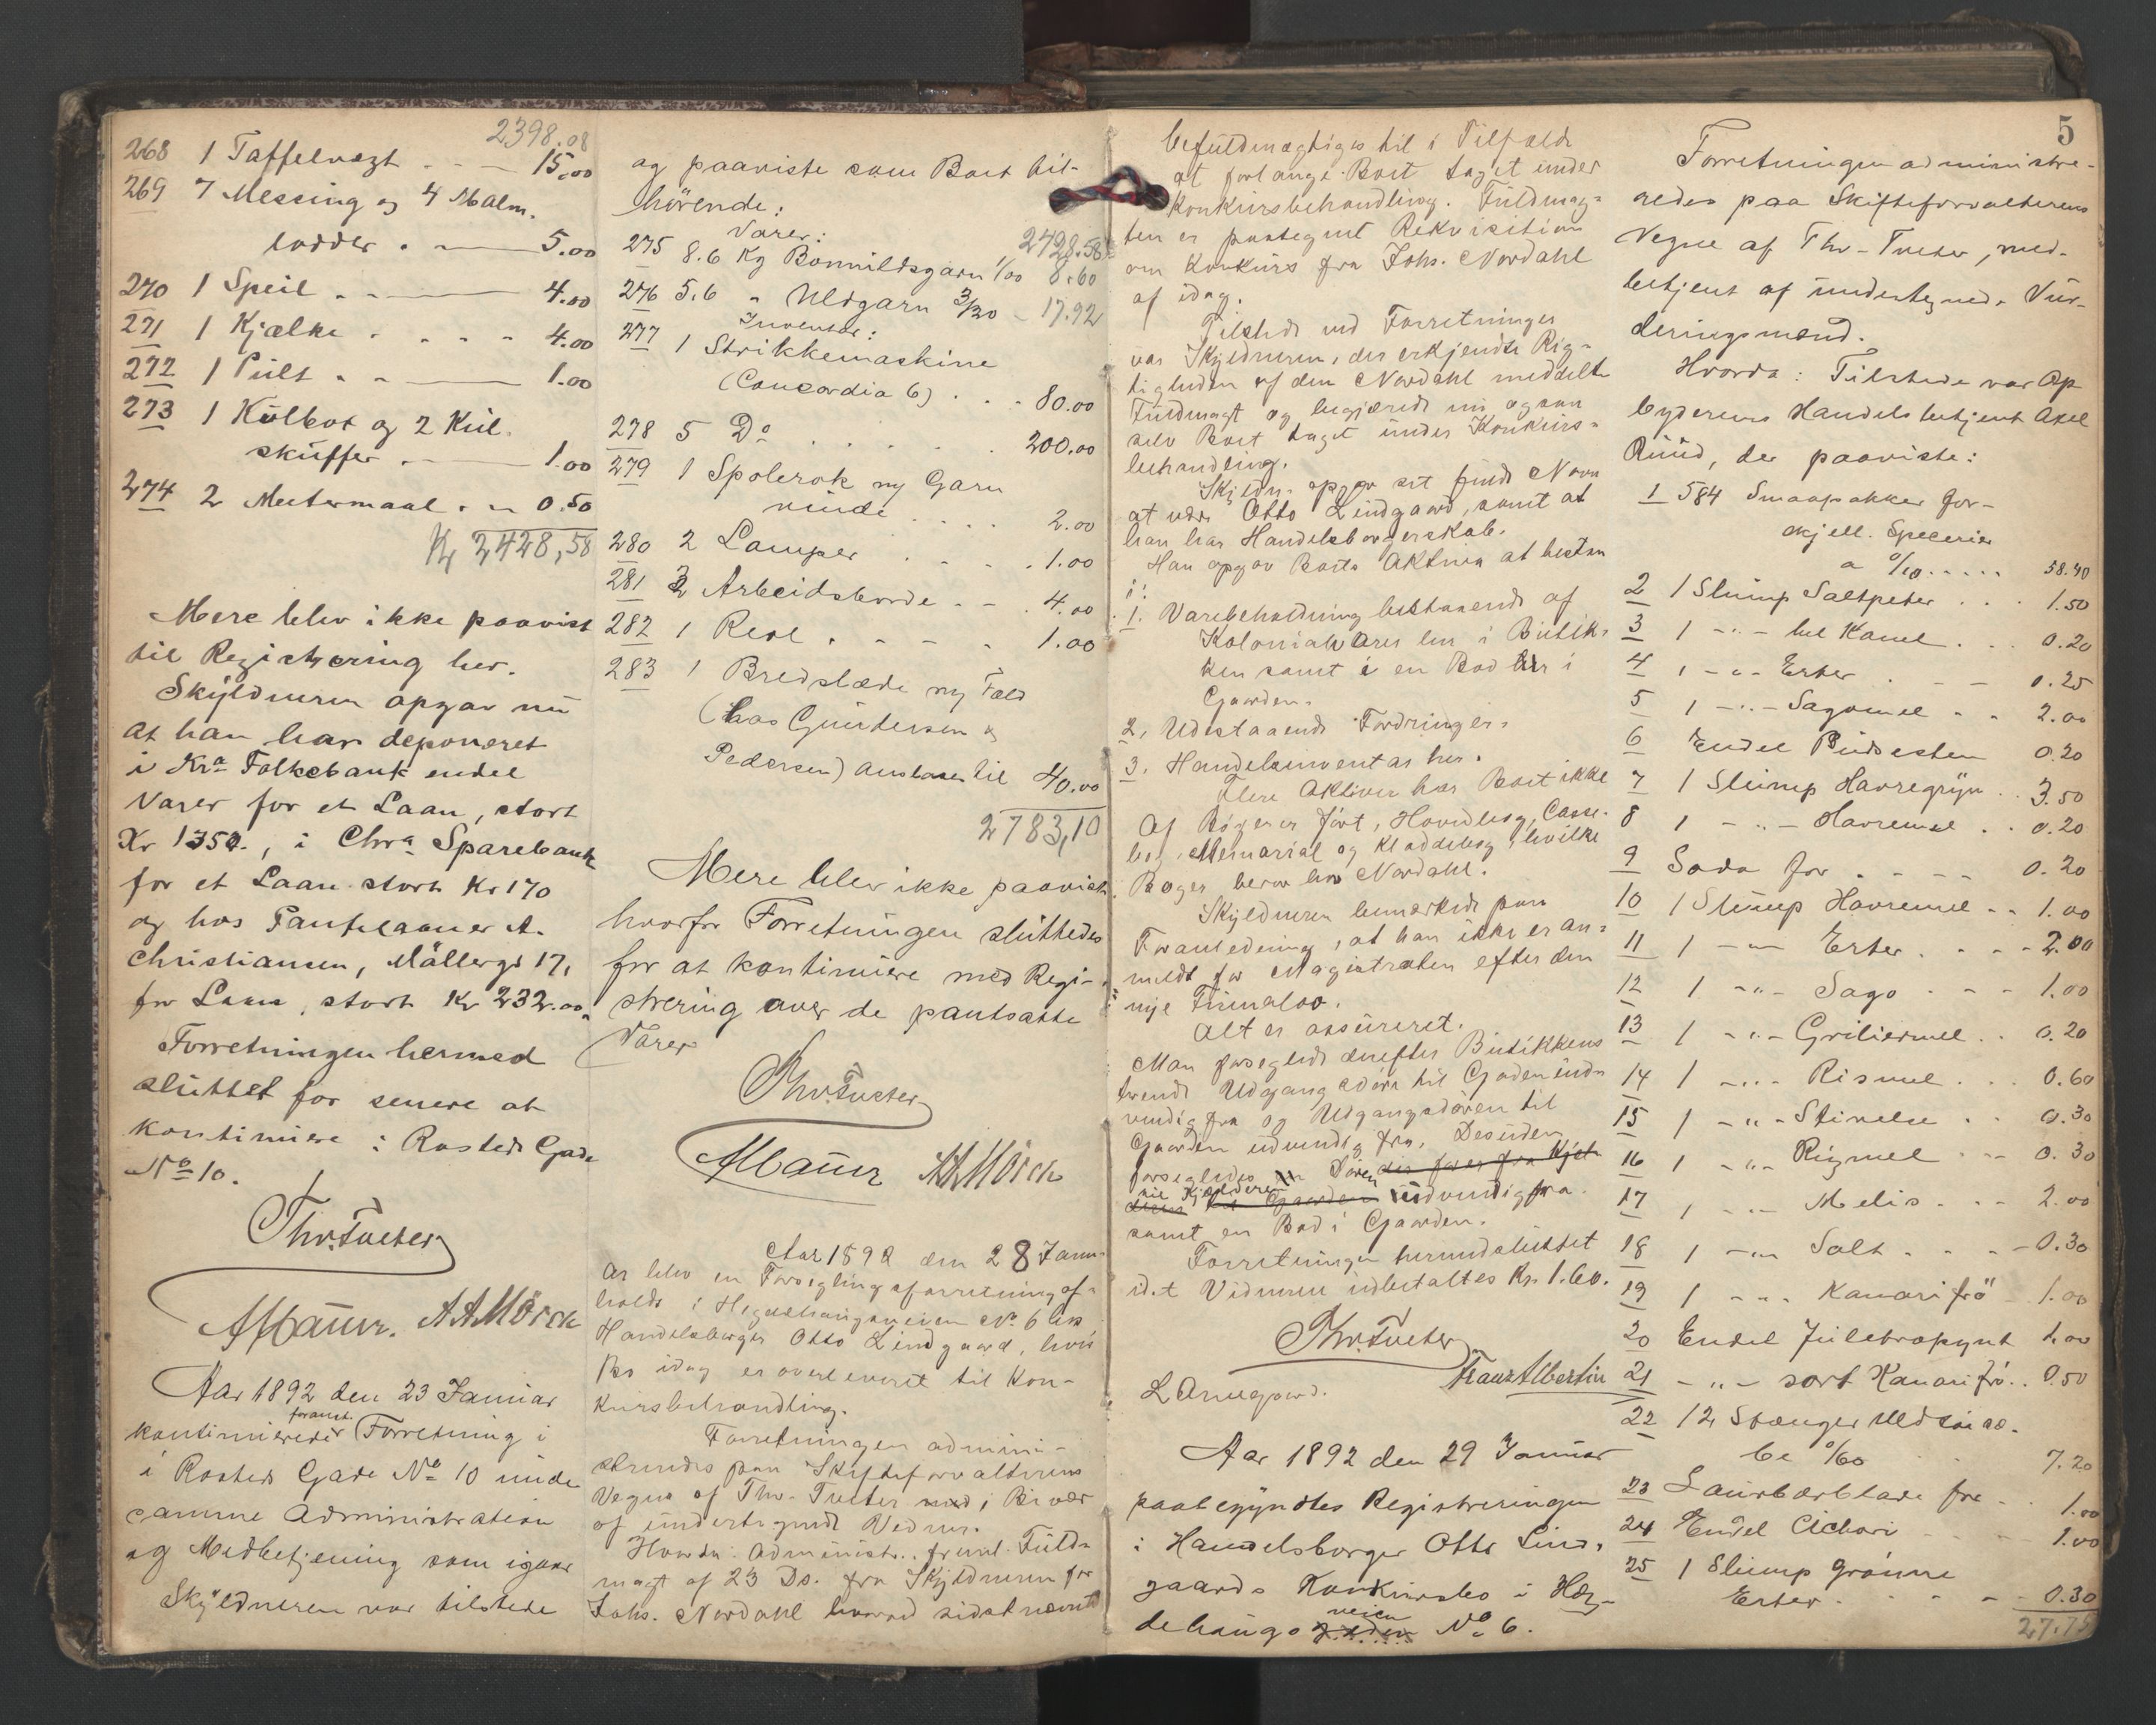 2398.08
268 1 Taffelvægt . - — 15.00
269 7 Messing og 4 Malm.
lodder . — 5.00
270 1 Speil . - — 4.00
271 1 Kjælke . . . . 4.00
272 1 Pult . - — 1.00
273 1 Kulbox og 2 Kul.
skuffer . — 1.00
274 2 Metermaal . - 0.50
Kr 2428,58
Mere blev ikke paavist
til Registrering her.
Skyldneren opgav nu
at han har deponeret
i Kra Folkebank endel
Varer for et Laan, stort
Kr 1350., i Chra Sparebank
for et Laan stort Kr 170
og hos Pantelaaner A.
Christiansen, Møllergd 17,
for Laan, stort Kr 232.00.
Forretningen hermed
sluttet for senere at
kontinuere i Rosteds Gade
No 10.
Thv. Tueter
A Maurer. A A Mörck
Aar 1892 den 23 Januar
kontinueredes foranst. Forretning i
i Rosteds Gade No 10 under
samme Administration
og Medbetjening som igaar
Skyldneren var tilstede
og paaviste som Boet til-
hörende:
Varer: 2428.58
275 8.6 Kg Bomuldsgarn 1/00 8.60
276 5.6 " Uldgarn 3/20 - 17.92
Inventar:
277 1 Strikkemaskine
(Concordia 6) . . - 80.00
278 5 Do . . . . . 200.00
279 1 Spolerok og Garn
vinde . . . . 2.00
280 2 Lamper . . . . 1.00
281 2 Arbeidsborde . - . 4.00
282 1 Reol . - - - 1.00
283 1 Bredslæde og Fæld
(hos Gundersen &
Pedersen) anslaaet til 40.00
2783,10
Mere blev ikke paavist
hvorfor Forretningen sluttedes
for at kontinuere med Regi-
strering over de pantsatte
Varer
Thv. Tueter
A Maurer A A Mörck
Aar 1892 den 28 Janu-
ar blev en Forseglingsforretning af-
holdt i Hegdehaugsveien No 6 hos
Handelsborger Otto Lindgaard, hvis
Bo idag er overleveret til Kon-
kursbehandling.
Forretningen admini-
streredes paa Skifteforvalterens
Vegne af Thv. Tueter med i Bivær
af undertegnede Vidner.
Hvorda: Administr. freml. Fuld-
magt af 23 Ds. fra Skyldneren for
Johs. Nordahl hvorved sidstnævnte
befuldmægtiges til i Tilfælde
at forlange Boet taget under
Konkursbehandling. Fuldmag-
ten er paategnet Rekvisition
om Konkurs fra Johs. Nordahl
af idag.
Tilstede ved Forretningen
var Skyldneren, der erkjendte Rig-
tigheden af den Nordahl meddelte
Fuldmagt og begjærede nu ogsaa
selv Boet taget under Konkurs-
behandling.
Skyldn. opgav sit fulde Navn
at være Otto Lindgaard, samt at
han har Handelsborgerskab.
Han opgav Boets Aktiva at bestaa
i:
1. Varebeholdning bestaaende af
Kolonialvarer her i Butik-
ken samt i en Bod her i
Gaarden.
2. Udestaaende Fordringer.
3. Handelsinventar her.
Flere Aktiver har Boet ikke
Af Bøger er ført, Hovedbog, Casse-
bog, Memorial og Kladdebog, hvilke
Bøger beror hos Nordahl.
Skyldneren bemærkede paa
Foranledning, at han ikke er an-
meldt for Magistraten efter den
nye Firmalov.
Alt er assureret.
Man forseglede derefter Butikkens
tvende Udgangsdøre til Gaden ind-
vendig fra og Udgangsdøren til
Gaarden udvendig fra. Desuden
forsegledes en Døren der fører fra Kjel-
deren til Kjælderen til Gaarden udvendig fra.
samt en Bod i Gaarden.
Forretningen hermed sluttet
idet Vidnerne udbetaltes Kr. 1.60.
Thv. Tueter
L Arnegaard. Franz Albertin
Aar 1892 den 29 Januar
paabegyndtes Registreringen
i Handelsborger Otto Lind-
gaards Konkursbo i Heg-
dehaugsgaden veien No 6.
5
Forretningen administre-
redes paa Skifteforvalterens
Vegne af Thv. Tueter, med-
betjent af undertegnede Vur-
deringsmænd.
Hvorda: Tilstede var Op-
byderens Handelsbetjent Axel
Ruud, der paaviste:
1 584 Smaapakker for-
skjell. Specerier
a 0/10 . . . . . 58.40
2 1 Slump Saltpeter . . . 1.50
3 1 - " - hel Kanel . . . 0.20
4 1 - " - Erter . - - 0.25
5 1 - " - Sagomel . . 2.00
6 Endel Pudsesten 0.20
7 1 Slump Havregryn . . 3.50
8 1 - " - Havremel . . 0.20
9 Soda for . - - - 0.20
10 1 Slump Havremel . . 1.00
11 1 - " - Erter . . - 2.00
12 1 - " - Sago . - - 1.00
13 1 - " - Griliermel . . 0.20
14 1 - " - Rismel . . . 0.60
15 1 - " - Stivelse . . 0.30
16 1 - " - Rugmel . - - 0.30
17 1 - " - Melis . . - 2.00
18 1 - " - Salt . . . - 0.30
19 1 - " - Kanarifrö - 1.00
20 Endel Juletrepynt 1.00
21 - " - sort Kanarifrö . . 0.50
22 12 Stænger Uldsæ-
be 0/60 7.20
23 Laurbærblade for - . . 1.00
24 Endel Cichori - - - - 1.00
25 1 Slump grönne
Erter . . - - - 0.30